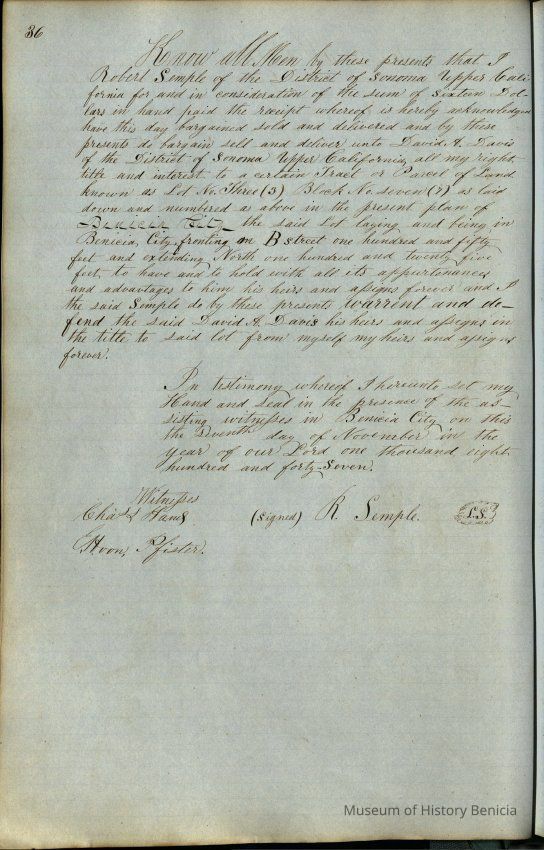 36
Know all Men by these presents that I
Robert Semple of the District of Sonoma Upper Cali
fornia for and in consideration of the sum of Sixteen Dol
lars in hand paid the receipt whereof is hereby acknowledged
have this day bargained sold and delivered and by these
presents do bargain sell and deliver unto David A. Davis
of the District of Sonoma Upper California, all my right
title and interest to a certain Tract or Parcel of Land
known as Lot No. Three (3) Block No. seven (7) as laid
down and numbered as above in the present plan of
Benicia City the said Lot laying and being in
Benicia City fronting on B street one hundred and fifty
feet and extending North one hundred and twenty five
feet, to have and to hold with all its appurtenances
and advantages to him his heirs and assigns forever and I
the said Semple do by these presents warrent and de-
fend the said David A. Davis his heirs and assigns in
the title to said lot from myself my heirs and assigns
forever.
In testimony whereof I hereunto set my
Hand and seal in the presence of the as-
sisting witnesses in Benicia City on this
the day of November in the
year of our Lord one thousand eight
hundred and forty-seven.
Witnesses
(signed) R. Semple. L.S.
Pfister.
Museum of History Benicia